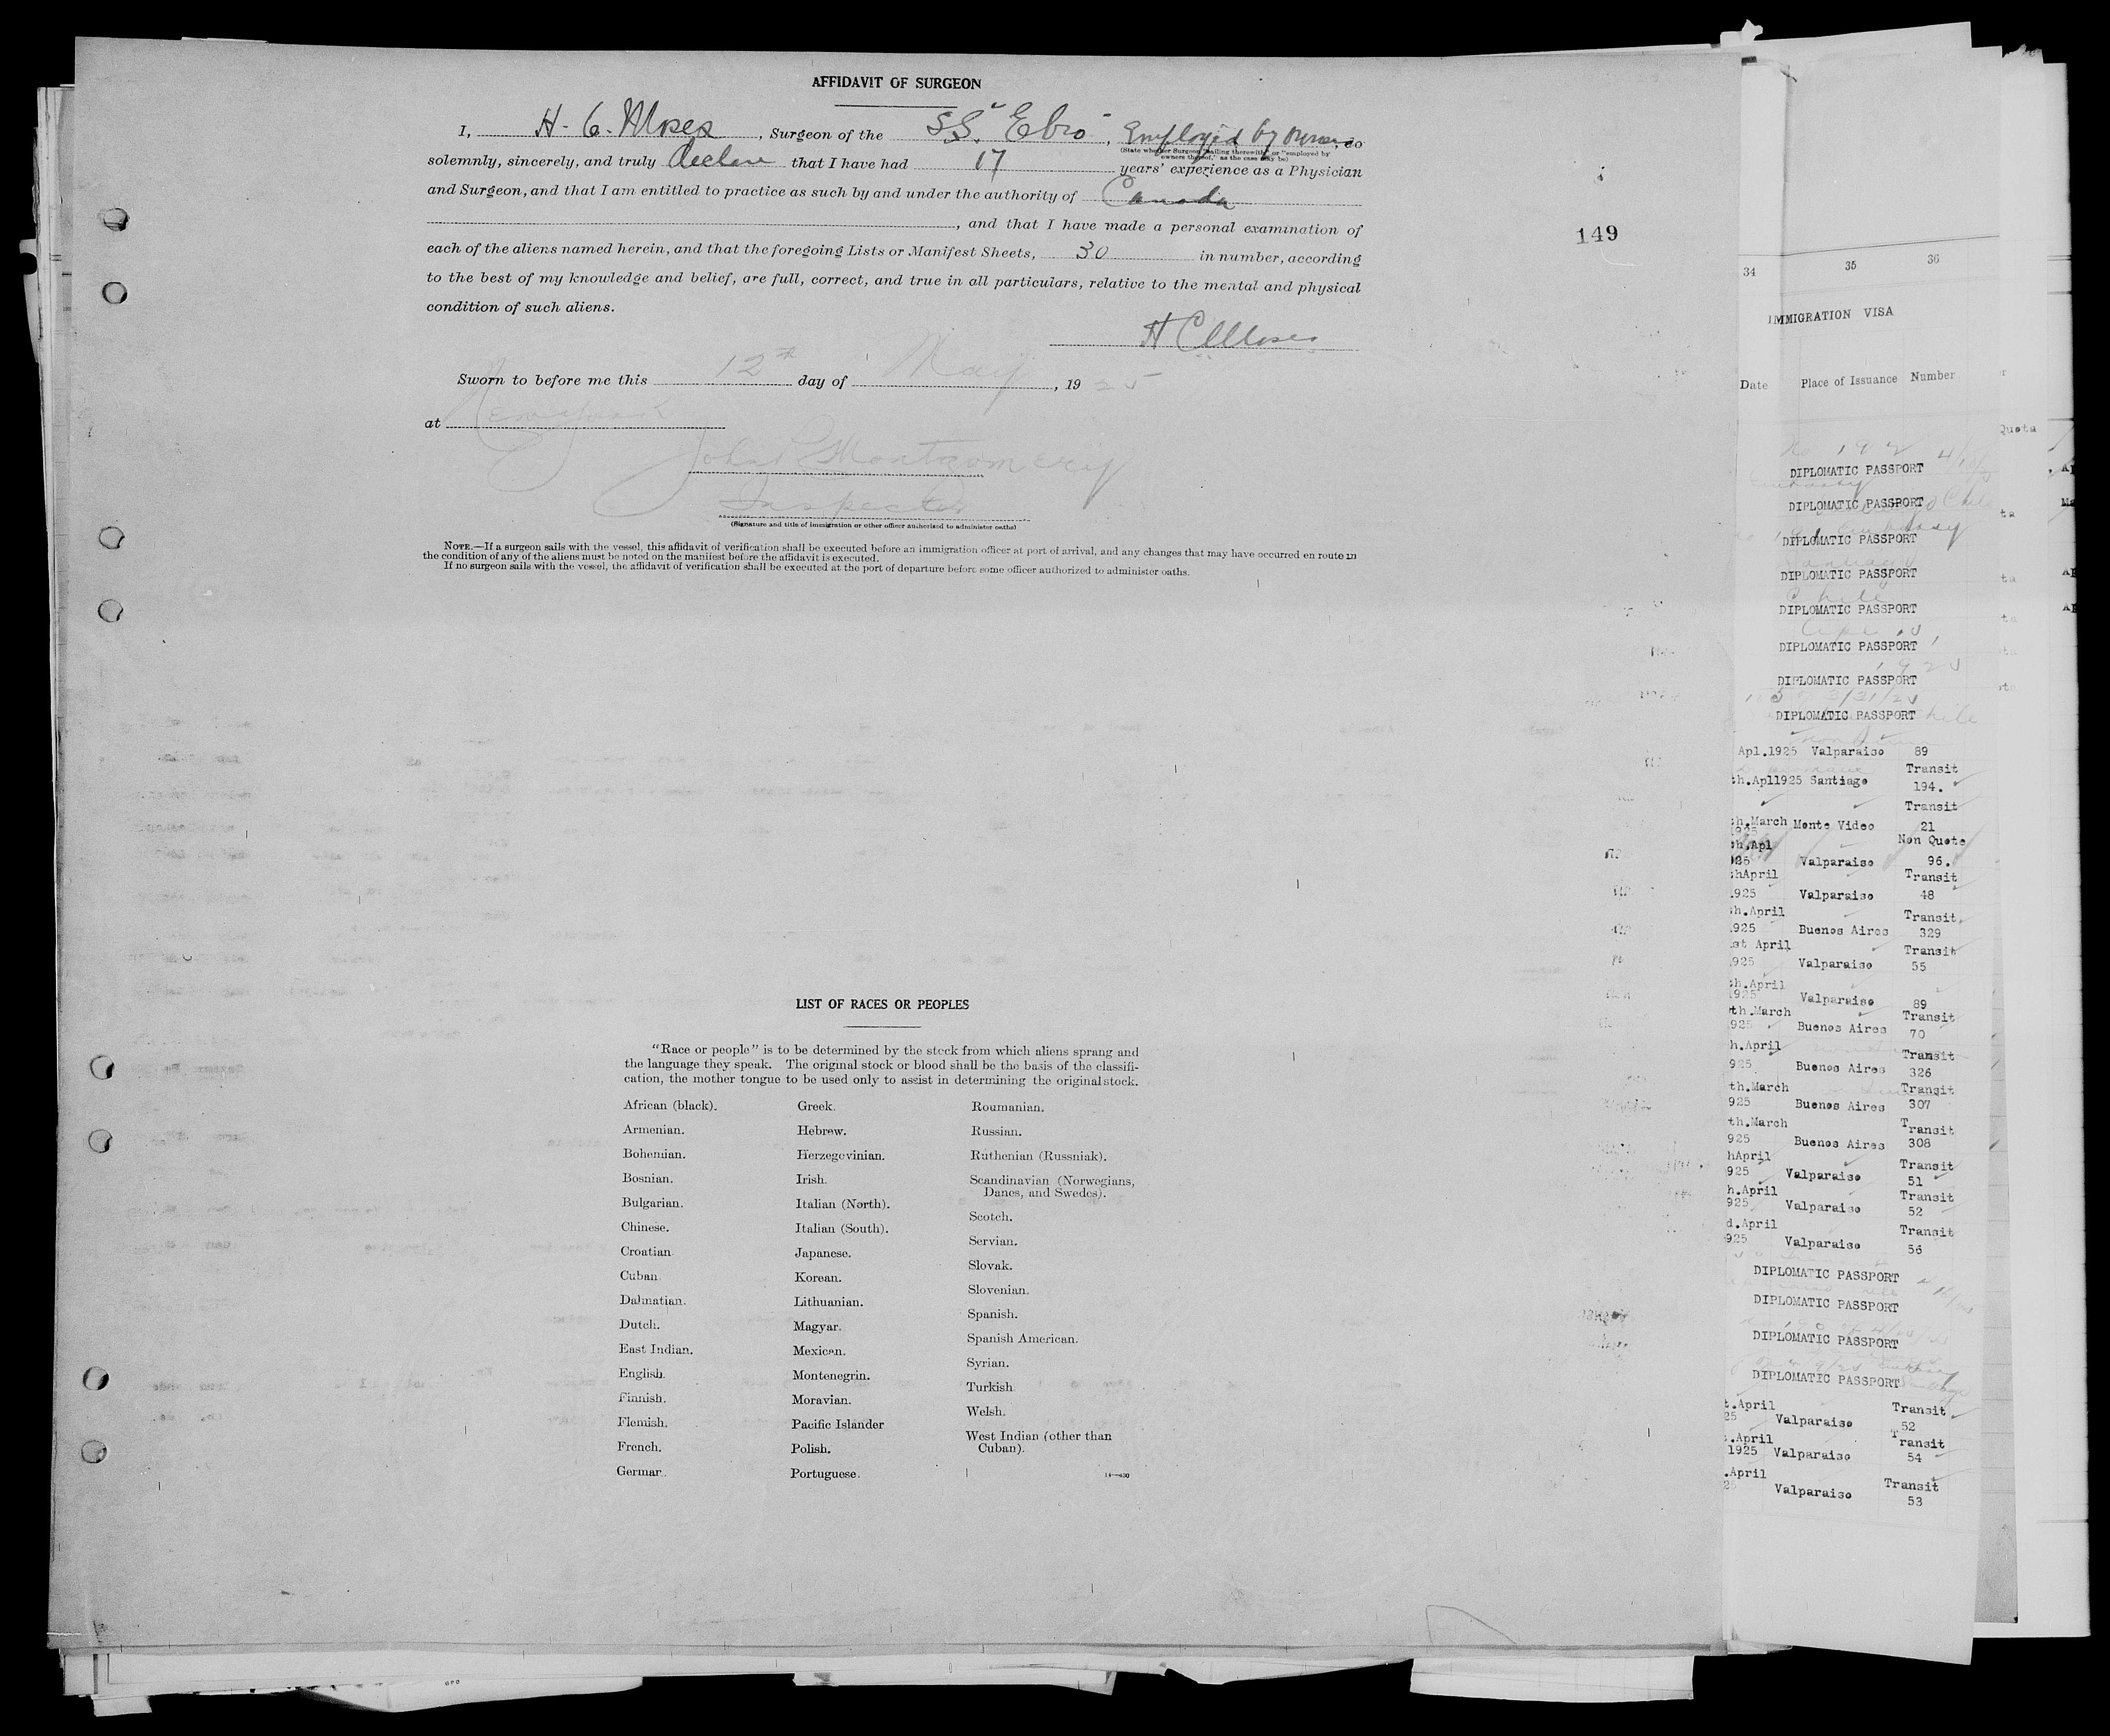 AFFIDAVIT OF SURGEON
I, H. C. Moses, Surgeon of the SS. "Ebro", Employed by owners, do
(State whether Surgeon "sailing therewith," or "employed by
owners thereof," as the case may be)
solemnly, sincerely, and truly declare that I have had 17 years' experience as a Physician
and Surgeon, and that I am entitled to practice as such by and under the authority of Canada
, and that I have made a personal examination of
each of the aliens named herein, and that the foregoing Lists or Manifest Sheets, 30 in number, according
to the best of my knowledge and belief, are full, correct, and true in all particulars, relative to the mental and physical
condition of such aliens.
H C Moses
Sworn to before me this 12th day of May, 1925
at New York
John Montgomery
Inspector
(Signature and title of immigration or other officer authorized to administer oaths)
NOTE.—If a surgeon sails with the vessel, this affidavit of verification shall be executed before an immigration officer at port of arrival, and any changes that may have occurred en route in
the condition of any of the aliens must be noted on the manifest before the affidavit is executed.
If no surgeon sails with the vessel, the affidavit of verification shall be executed at the port of departure before some officer authorized to administer oaths.
149
LIST OF RACES OR PEOPLES
"Race or people" is to be determined by the stock from which aliens sprang and
the language they speak. The original stock or blood shall be the basis of the classifi-
cation, the mother tongue to be used only to assist in determining the original stock.
African (black).
Armenian.
Bohemian.
Bosnian.
Bulgarian.
Chinese.
Croatian.
Cuban.
Dalmatian.
Dutch.
East Indian.
English.
Finnish.
Flemish.
French.
German.
Greek.
Hebrew.
Herzegovinian.
Irish.
Italian (North).
Italian (South).
Japanese.
Korean.
Lithuanian.
Magyar.
Mexican.
Montenegrin.
Moravian.
Pacific Islander
Polish.
Portuguese.
Roumanian.
Russian.
Ruthenian (Russniak).
Scandinavian (Norwegians,
Danes, and Swedes).
Scotch.
Servian.
Slovak.
Slovenian.
Spanish.
Spanish American.
Syrian.
Turkish
Welsh.
West Indian (other than
Cuban).
34 35 36
IMMIGRATION VISA
Date Place of Issuance Number
Quota
DIPLOMATIC PASSPORT
DIPLOMATIC PASSPORT
DIPLOMATIC PASSPORT
DIPLOMATIC PASSPORT
DIPLOMATIC PASSPORT
DIPLOMATIC PASSPORT
DIPLOMATIC PASSPORT
DIPLOMATIC PASSPORT
Apl.1925 Valparaiso 89
Transit
th.Apl1925 Santiago 194.
Transit
h.March
1925 Monte Video 21
Non Quote
h.Apl
925 Valparaiso 96.
hApril Transit
1925 Valparaiso 48
h.April Transit
1925 Buenos Aires 329
st April Transit
1925 Valparaiso 55
h.April
1925 Valparaiso 89
th.March Transit
925 Buenos Aires 70
h.April Transit
925 Buenos Aires 326
th.March Transit
925 Buenos Aires 307
th.March Transit
925 Buenos Aires 308
hApril Transit
925 Valparaiso 51
h.April Transit
925 Valparaiso 52
d.April Transit
925 Valparaiso 56
DIPLOMATIC PASSPORT
DIPLOMATIC PASSPORT
DIPLOMATIC PASSPORT
DIPLOMATIC PASSPORT
t.April Transit
25 Valparaiso 52
.April Transit
1925 Valparaiso 54
.April Transit
25 Valparaiso 53